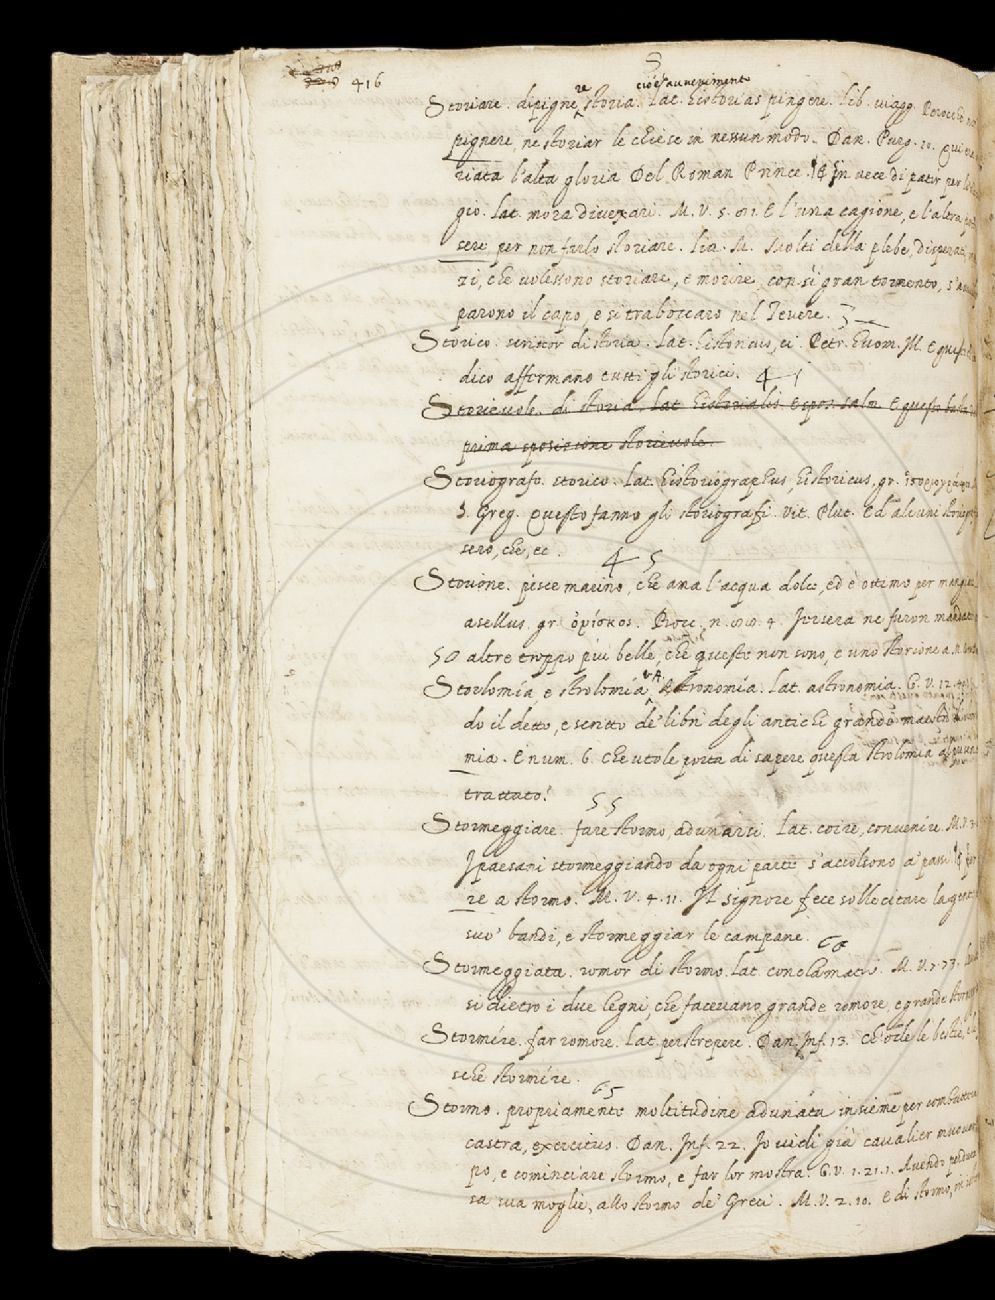 416
S
cioè avvenimento
Storiare. dipignere storia. Lat. historias pingere. Lib. viagg.
pignere, ne storiar le chiese in nessun modo. Dan. Purg. 10. Qui era
riata l'alta gloria Del Roman Prince. § in vece di patir per
gio. Lat. mora divexari. M. V. 5. 81. E l'una cagione, e l'altra
sere per non farlo storiare. Liv. M. Molti della plebe, disperati,
zi, che volessono storiare, e morire con sì gran tormento, s'
parono il capo, e si traboccaro nel Tevere. 3
Storico. scrittor di storia. Lat. historicus, ci. Petr. huom. M. E questo
dico affermano tutti gli storici. 41
Storievole. di storia. Lat. historialis. Espos. salm. E questo basta
prima sposizione storievole.
Storiografo. storico. Lat. historiographus, historicus, gr. ἱστοριογράφος
S. Greg. Questo fanno gli storiografi. Vit. Plut. Ed alcuni
sero, che, ec.
45
Storione. pesce marino, che ama l'acqua dolce, ed è ottimo per mangiare
asellus. gr. ὀνίσκος. Bocc. n. 4. Iersera ne furon mandate
50 altre troppo piu belle, che queste non sono, e uno storione a
Storlomía, e strolomía. Astronomia. Lat. astronomia. G. V. 12.
do il detto, e scritto de' libri degli antichi grandi maestri di
mia. E num. 6. Che utole porta di sapere questa strolomia
trattato.
55
Stormeggiare. fare stormo, adunarsi. Lat. coire, convenire. M. V.
I paesani stormeggiando da ogni parte s'accolsono a' passi. §
re a stormo. M. V. 4. 11. Il signore fece sollecitare la gente
suo' bandi, e stormeggiar le campane.
60
Stormeggiata. romor di stormo. Lat. conclamatio. M. V. 7. 73.
si dietro i due legni, che facevano grande romore, e grande
Stormire. far romore. Lat. perstrepere. Dan. Inf. 13. Ch'ode le bestie, e le
sche stormire.
65
Stormo. propriamente moltitudine adunata insieme per combattere
castra, exercitus. Dan. Inf. 22. Io vidi già cavalier muover
po, e cominciare stormo, e far lor mostra. G. V. 1. 21. 1. Avendo
sa sua moglie, allo stormo de' Greci. M. V. 2. 10. E di stormo, in